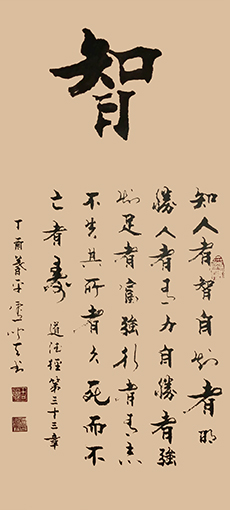 智
知人者智自知者明
勝人者有力自勝者強
知足者富強行者有志
不失其所者久死而不
亡者壽
道德經第三十三章
丁酉